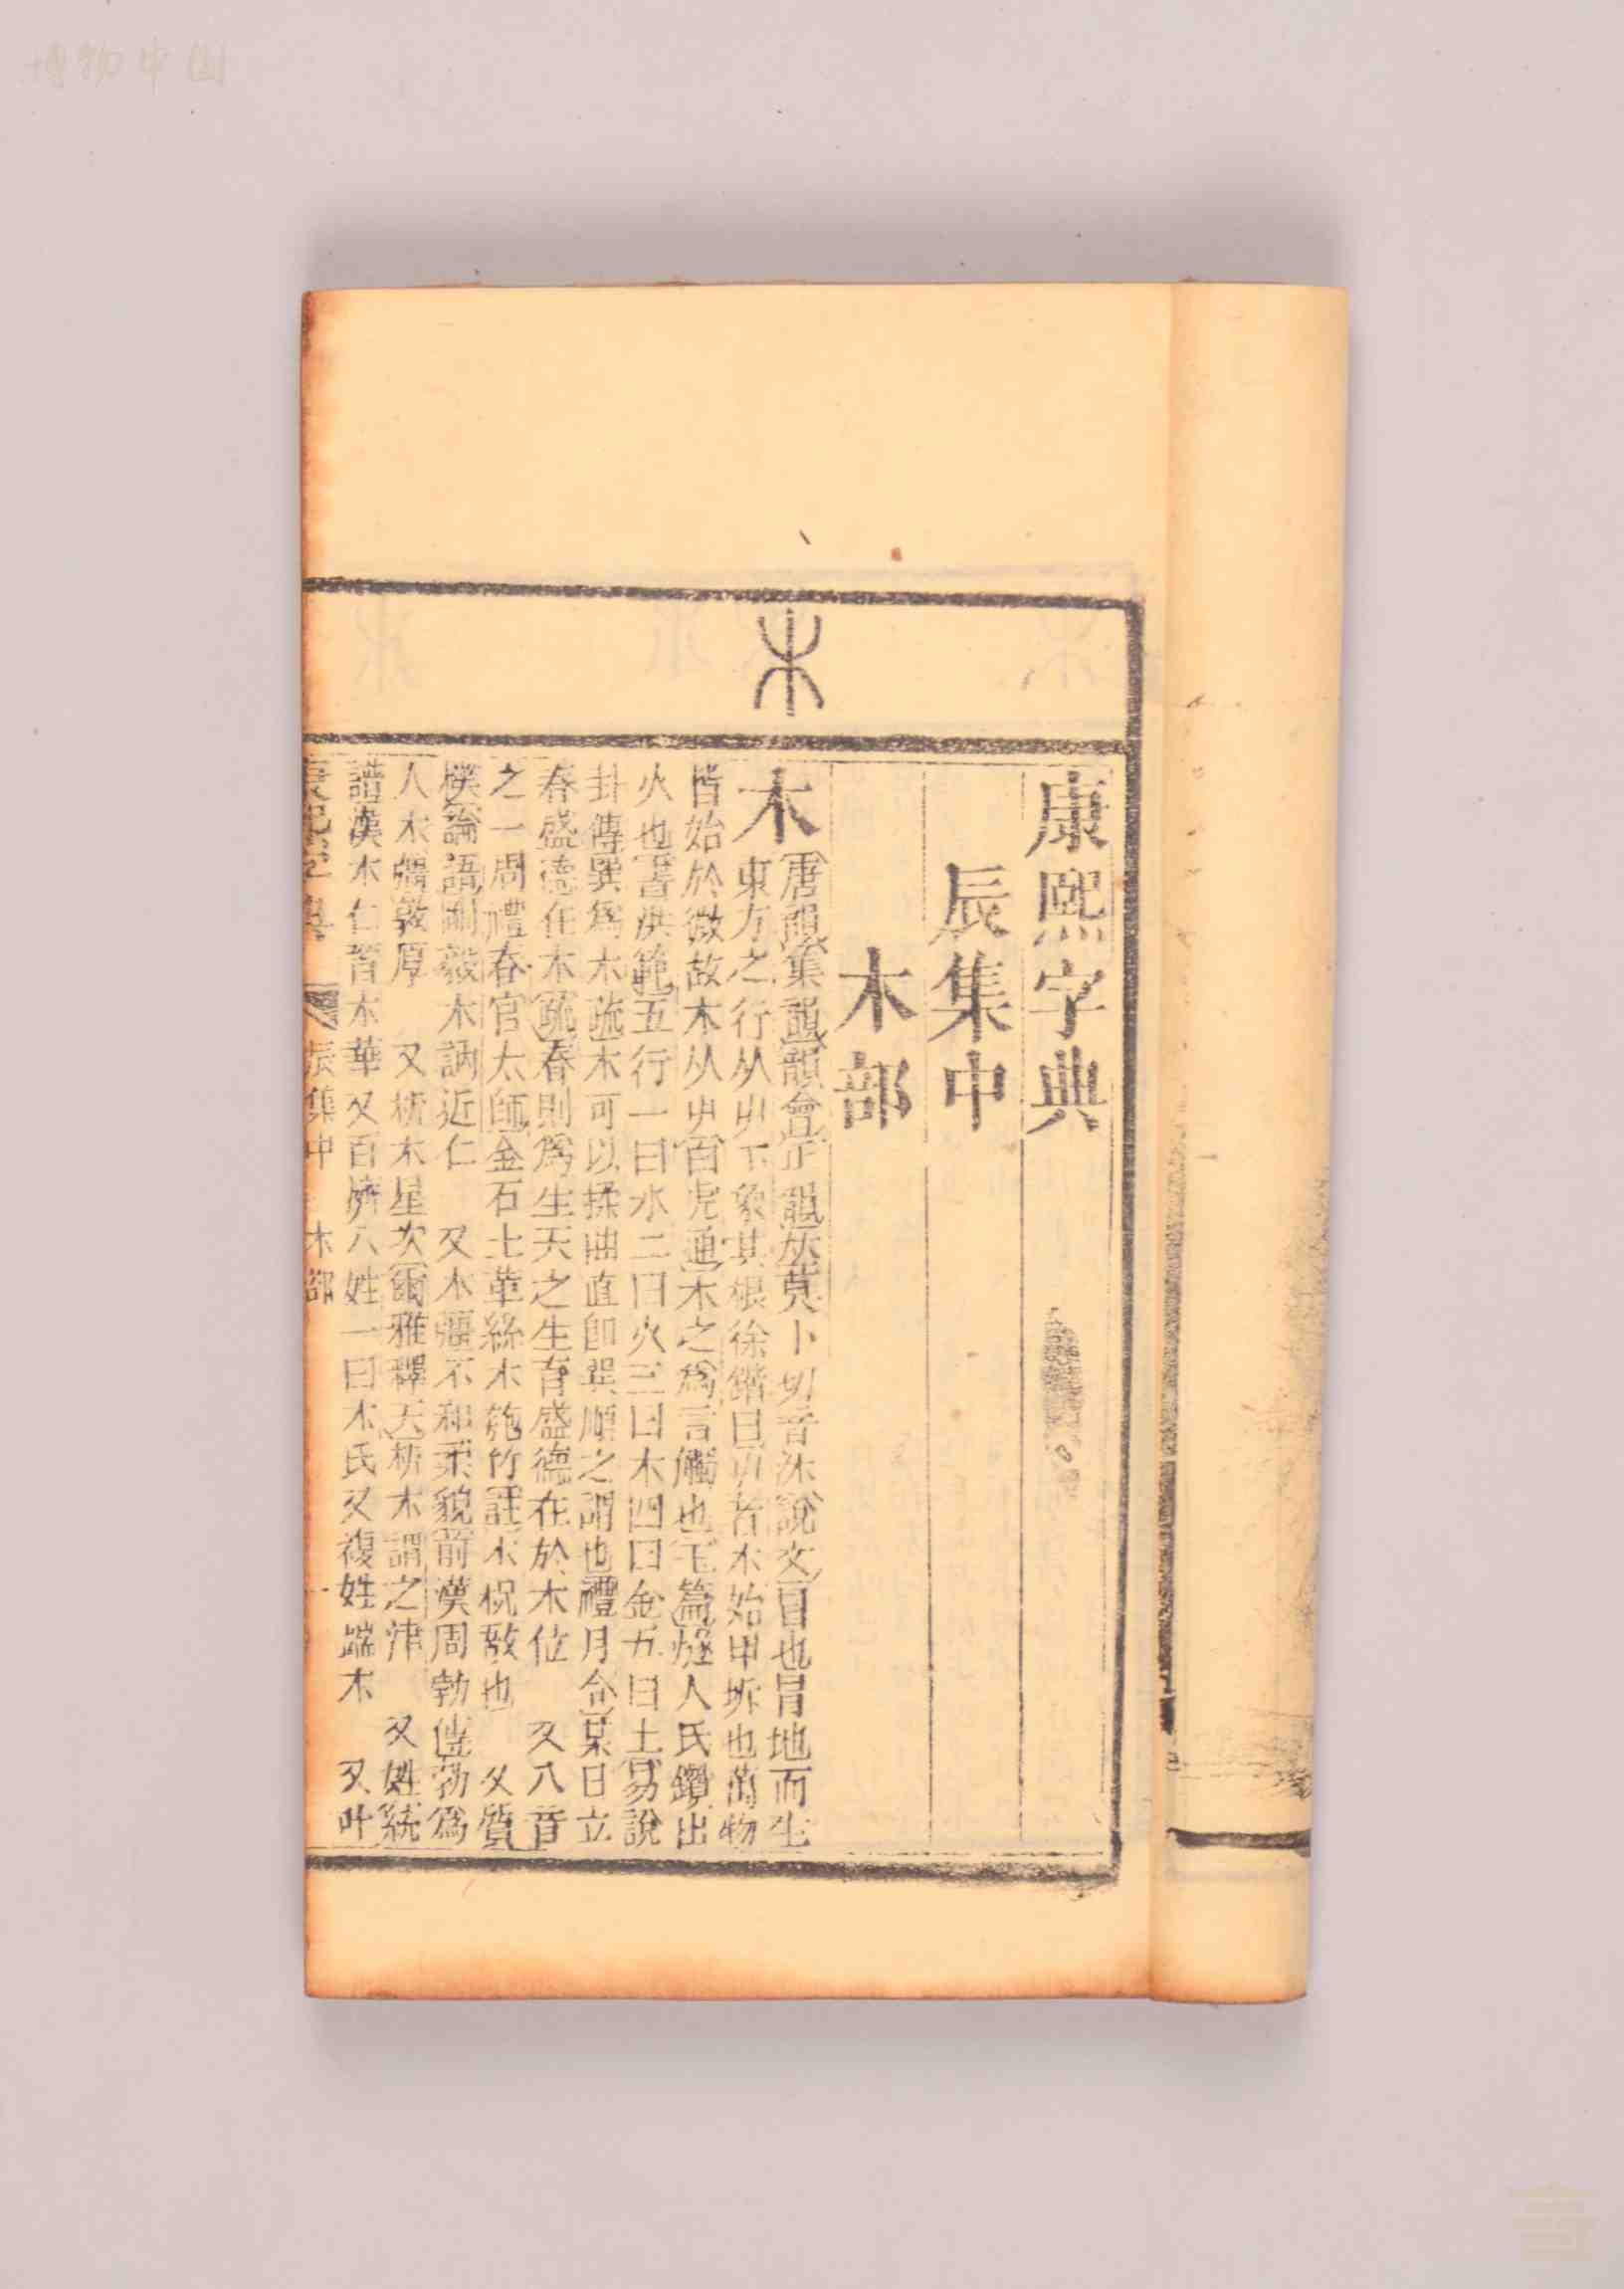 博物中国
木
康熙字典
辰集中
木部
木
唐韻集韻韻會正韻𠀤莫卜切音沐說文冒也冒地而生
東方之行从屮下象其根徐鍇曰屮者木始甲坼也萬物
皆始於微故木从屮白虎通木之爲言觸也玉篇燧人氏鑽出
火也書洪範五行一曰水二曰火三曰木四曰金五曰土易說
卦傳巽爲木疏木可以揉曲直卽巽順之謂也禮月令某日立
春盛德在木疏春則爲生天之生育盛德在於木位 又八音
之一周禮春官太師金石土革絲木匏竹註木柷敔也 又質
樸論語剛毅木訥近仁 又木彊不和柔貌前漢周勃傳勃爲
人木彊敦厚 又析木星次爾雅釋天析木謂之津 又姓統
譜漢木仁晉木華又百濟八姓一曰木氏又複姓端木 又叶
康熙字典 辰集中 木部 一